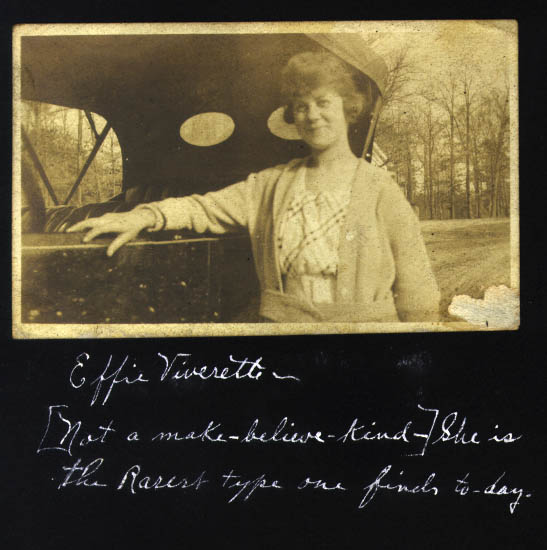 Effie Viverette
[Not a make-believe-kind-] She is
the Rarest type one finds to-day.